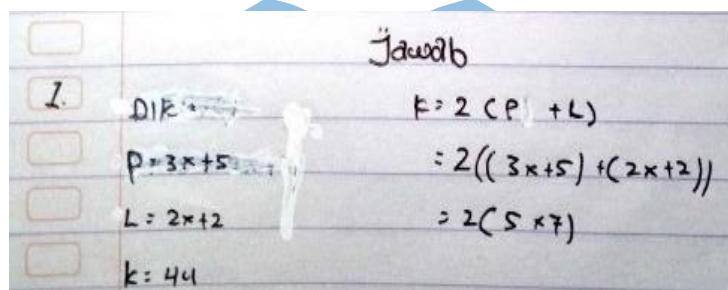 Jawab
1.
Dik:
P = 3x+5
L = 2x+2
k = 44
k = 2 (P + L)
= 2((3x+5) + (2x+2))
= 2(5x7)